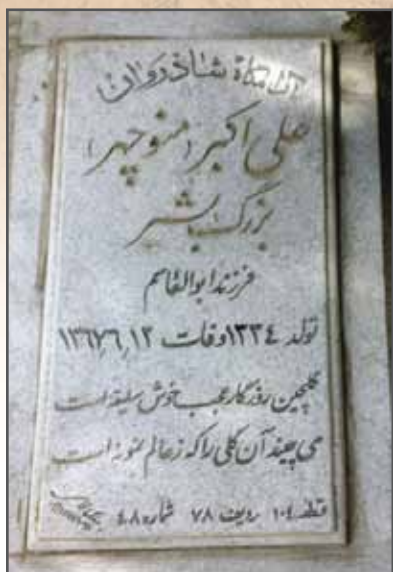 آرامگاه شادروان
علی اکبر (منوچهر)
بزرگ بشر
فرزند ابوالقاسم
تولد ۱۳۳۴ وفات ۱۳۶۷٫۶٫۱۲
گلچین روزگار عجب خوش سلیقه است
می چیند آن گلی را که ز عالم نمونه است
قطعه ۱۰۴ ردیف ۷۸ شماره ۴۰۸